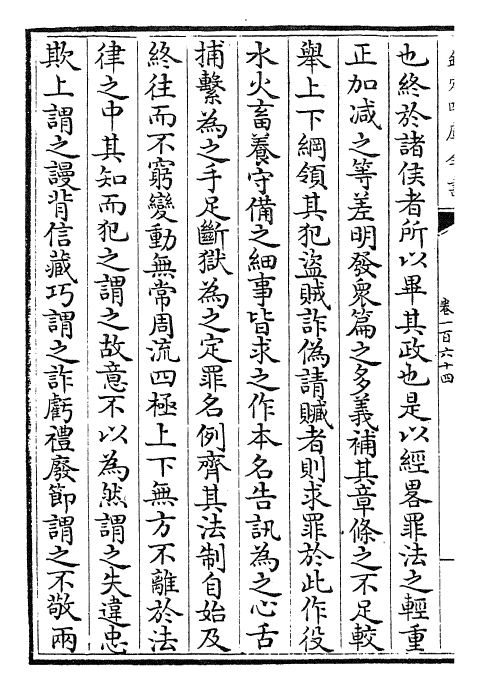 欽定四庫全書
卷一百六十四
也終於諸侯者所以畢其政也是以經畧罪法之輕重
正加减之等差明發衆篇之多義補其章條之不足較
舉上下綱領其犯盜賊詐偽請贓者則求罪於此作役
水火畜養守備之細事皆求之作本名告訊為之心舌
捕繫為之手足斷獄為之定罪名例齊其法制自始及
終往而不窮變動無常周流四極上下無方不離於法
律之中其知而犯之謂之故意不以為然謂之失違忠
欺上謂之謾背信藏巧謂之詐虧禮廢節謂之不敬兩